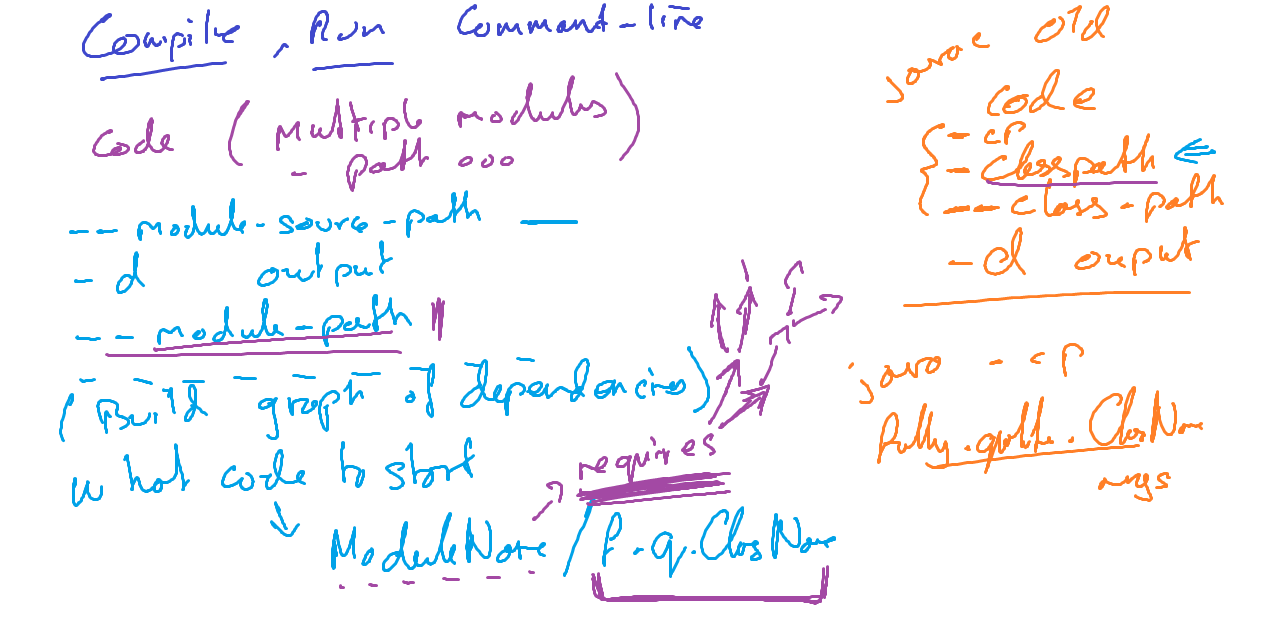 Compile, Run Command-line
Code (Multiple modules)
- path ...
-- module-source-path __
- d output
-- module-path
(Build graph of dependencies)
what code to start
requires
ModuleName / f.q.ClassName
javac old
code
- cp
- classpath
-- class-path
- d ouput
java - cp
Fully.qualifie.ClassName
args